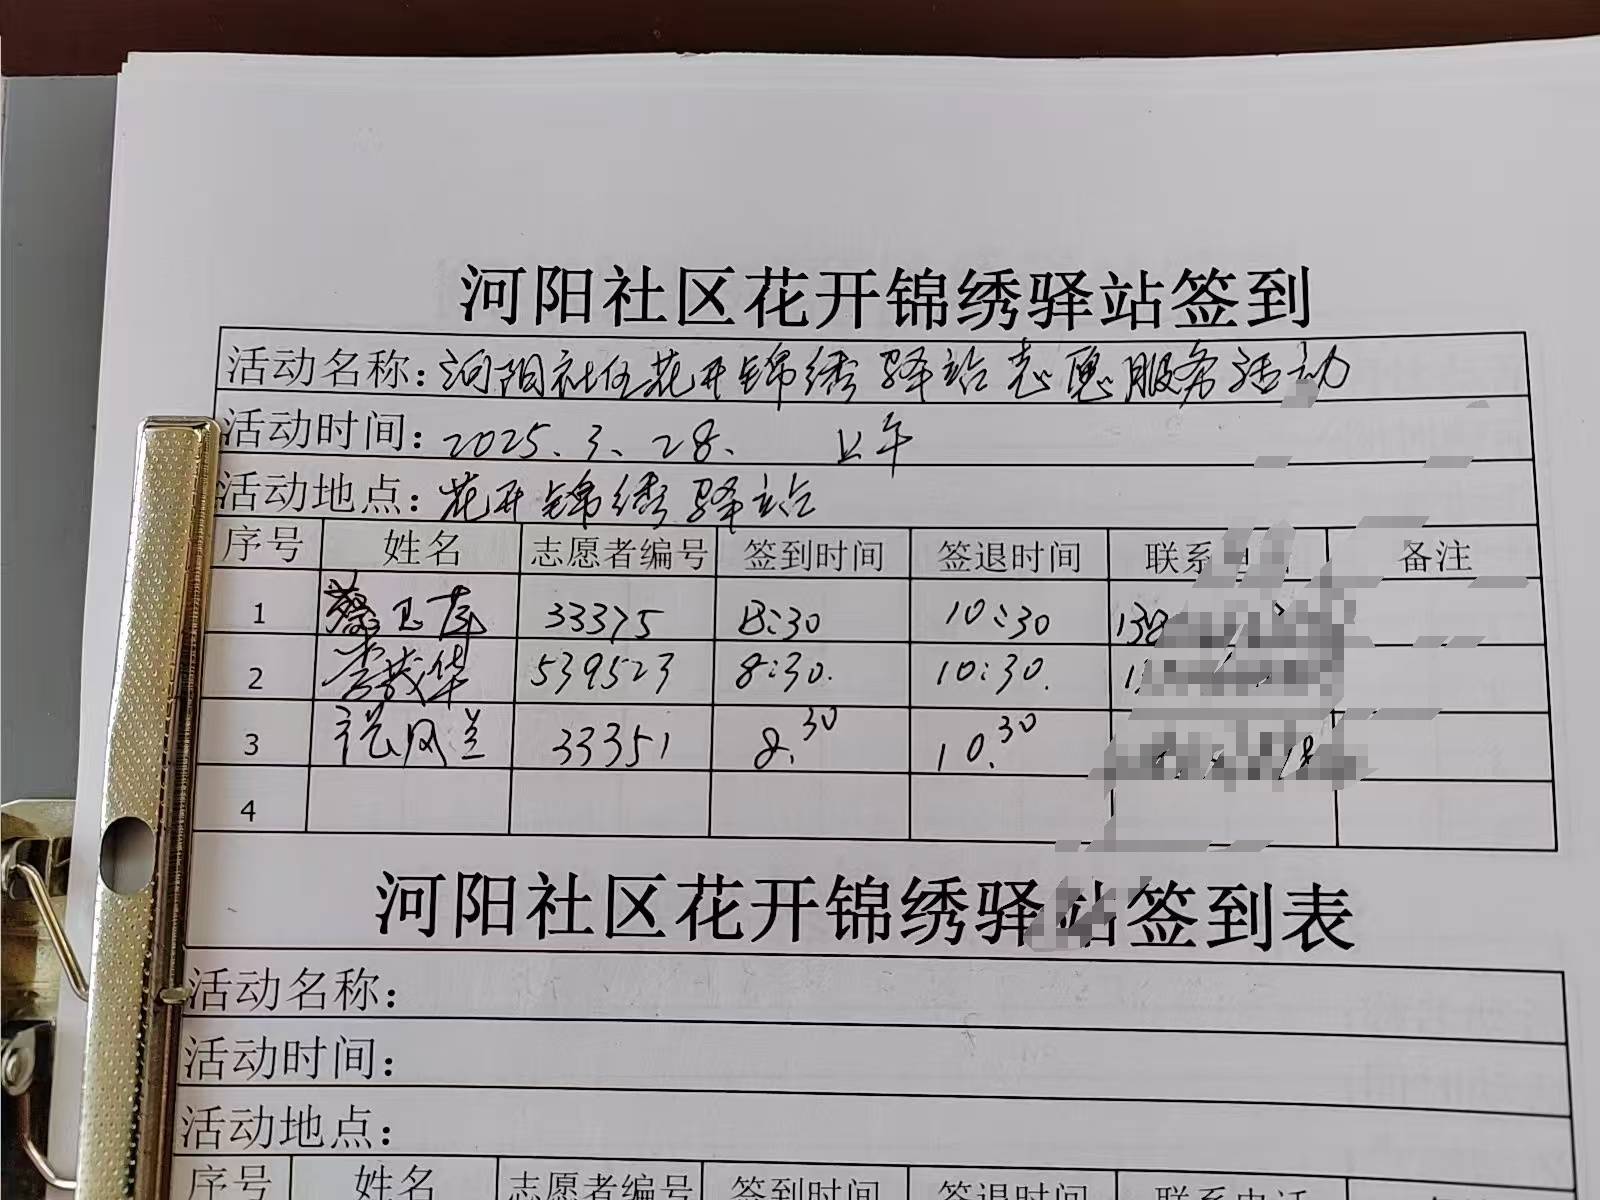 河阳社区花开锦绣驿站签到
活动名称：河阳社区花开锦绣驿站志愿服务活动
活动时间：2025.3、28、 上午
活动地点：花开锦绣驿站
序号 姓名 志愿者编号 签到时间 签退时间 联系 备注
1 蔡 33375 8:30 10:30 138
2 华 539523 8:30. 10:30.
3 凤兰 33351 8.30 10.30
4
河阳社区花开锦绣驿站签到表
活动名称：
活动时间：
活动地点：
序号 姓名 志愿者编号 签到时间 签退时间 联系电话